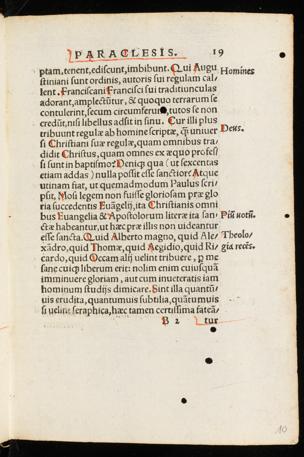 PARACLESIS. 19
ptam, tenent, ediscunt, imbibunt. Qui Augu
stiniani sunt ordinis, autoris sui regulam cal
lent. Franciscani Francisci sui traditiunculas
adorant, amplectūtur, & quoquo terrarum se
contulerint, secum circumferunt, tutos se non
credūt, nisi libellus adsit in sinu. Cur illi plus
tribuunt regulæ ab homine scriptæ, q̃ uniuer
si Christiani suæ regulæ, quam omnibus tra-
didit Christus, quam omnes ex æquo professi
si sunt in baptismo? Deniq; qua (ut sexcentas
etiam addas) nulla possit esse sanctior? Atque
utinam fiat, ut quemadmodum Paulus scri-
psit, Mosi legem non fuisse gloriosam præ glo
ria succedentis Euāgelij, ita Christianis omni
bus Euangelia & Apostolorum literæ ita san-
ctæ habeantur, ut hæc præ illis non uideantur
esse sancta. Quid Alberto magno, quid Ale-
xādro, quid Thomæ, quid Aegidio, quid Ri-
cardo, quid Occam alij uelint tribuere, per me
sane cuiq; liberum erit: nolim enim cuiusquā
imminuere gloriam, aut cum inueteratis iam
hominum studijs dimicare. Sint illa quantū-
uis erudita, quantumuis subtilia, quātumuis
si uelint seraphica, hæc tamen certissima fateā/
B 2 tur
Homines
Deus.
Theolo/
gia recēs.
10